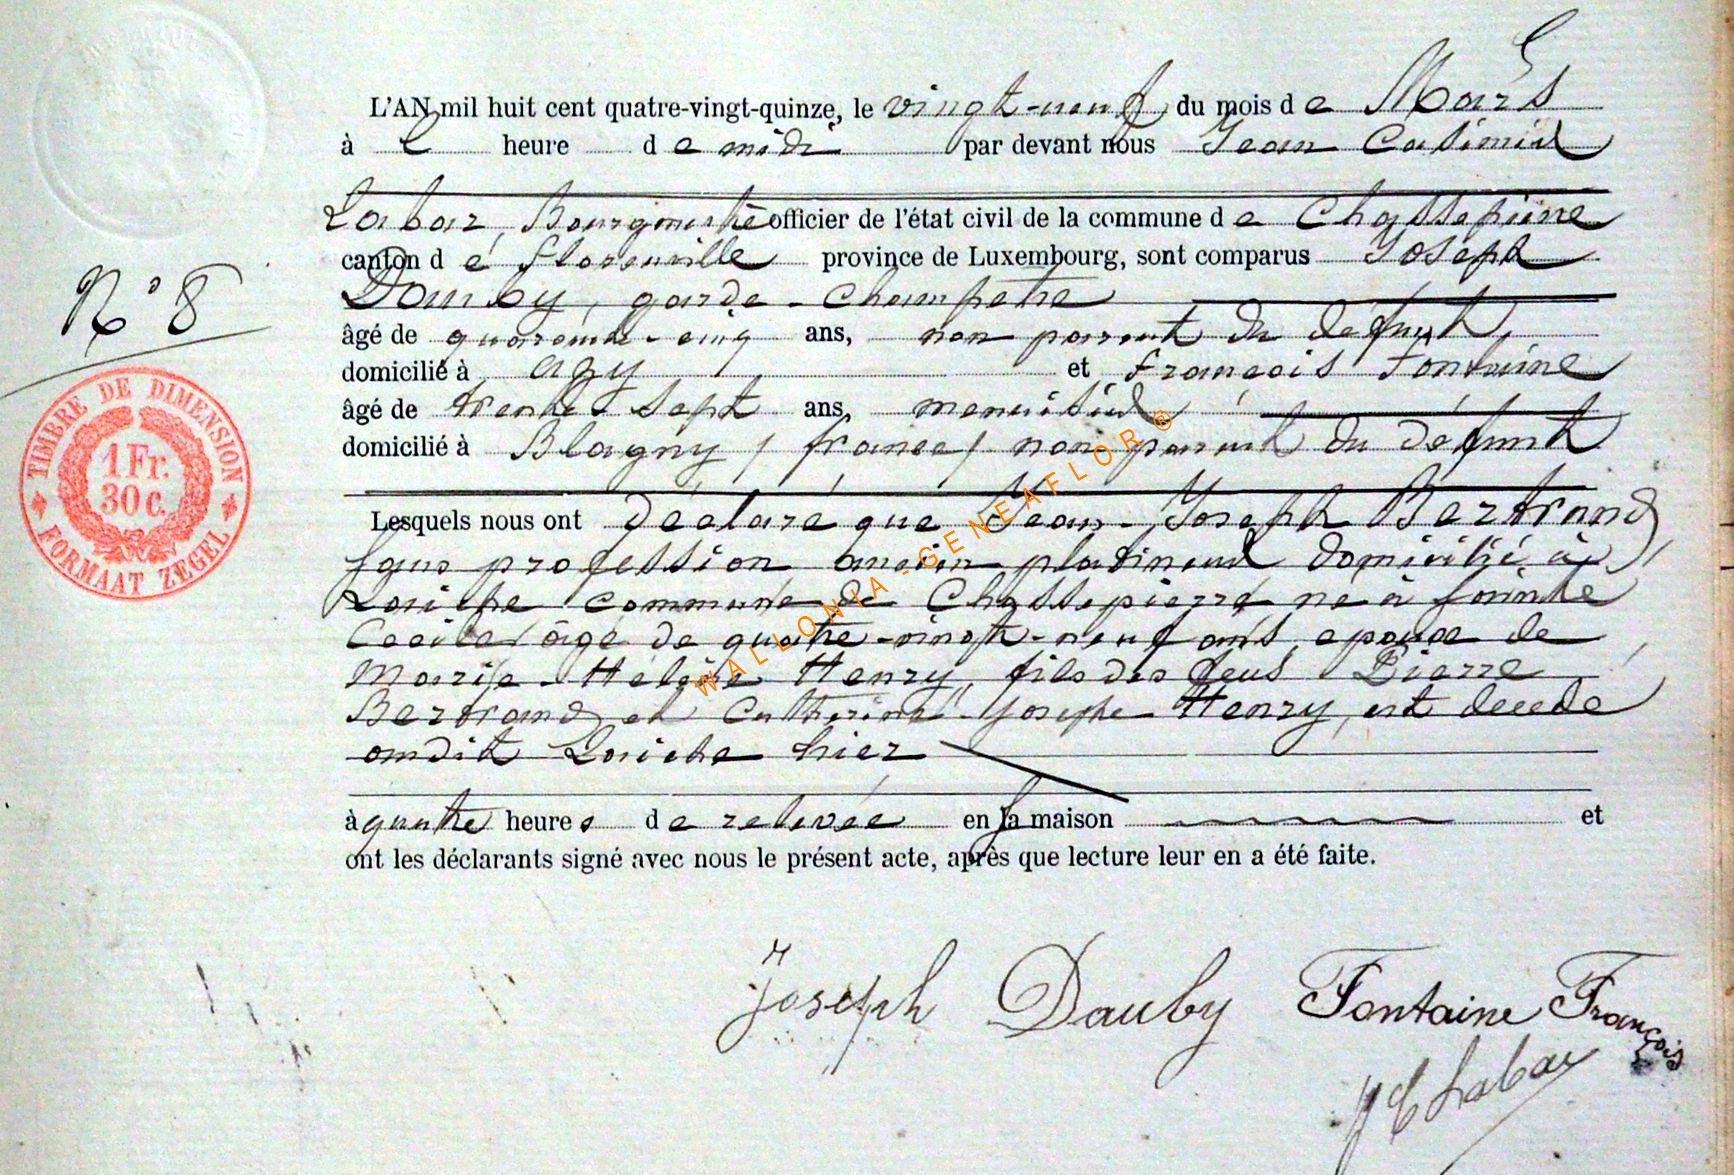 L'AN mil huit cent quatre-vingt-quinze, le vingt-neuf du mois de Mars
à heure de midi par devant nous Jean Casimir
Labar, Bourgmestre officier de l'état civil de la commune de Chassepierre
canton de Florenville province de Luxembourg, sont comparus Joseph
Dauby, garde-champetre
N° 8
âgé de quarante-cinq ans, non parent du défunt,
domicilié à Azy et François Fontaine
âgé de trente-sept ans, menuisier
domicilié à Blagny / france / non parent du défunt
TIMBRE DE DIMENSION
1 Fr.
30 c.
FORMAAT ZEGEL
Lesquels nous ont déclaré que Jean-Joseph Bertrand
sans profession ancien platineur domicilié à
Laiche commune de Chassepierre né à Sainte
Cecile âgé de quatre-vingt-neuf ans, epoux de
Marie-Hélène Henry, fils des feus Pierre
Bertrand et Catherine-Josephe Henry, est decede
audit Laiche hier
à quatre heures de relevée en sa maison et
ont les déclarants signé avec nous le présent acte, après que lecture leur en a été faite.
Joseph Dauby Fontaine François
JC Labar
WALLONIA-GENEAFLOR®